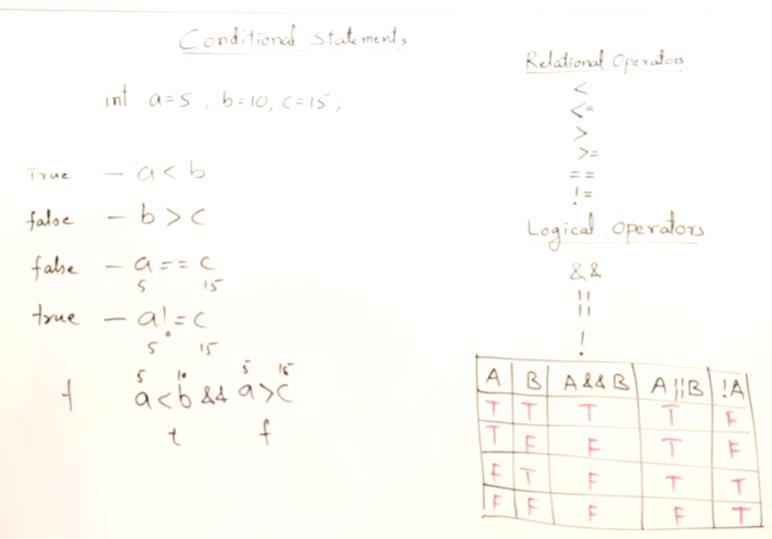 Conditional Statements
int a=5, b=10, c=15;
True - a < b
false - b > c
false - a == c
5 15
true - a != c
5 15
5 10 5 15
f a<b && a>c
t f
Relational Operators
<
<=
>
>=
==
!=
Logical Operators
&&
||
!
A B A&&B A||B !A
T T T T F
T F F T F
F T F T T
F F F F T